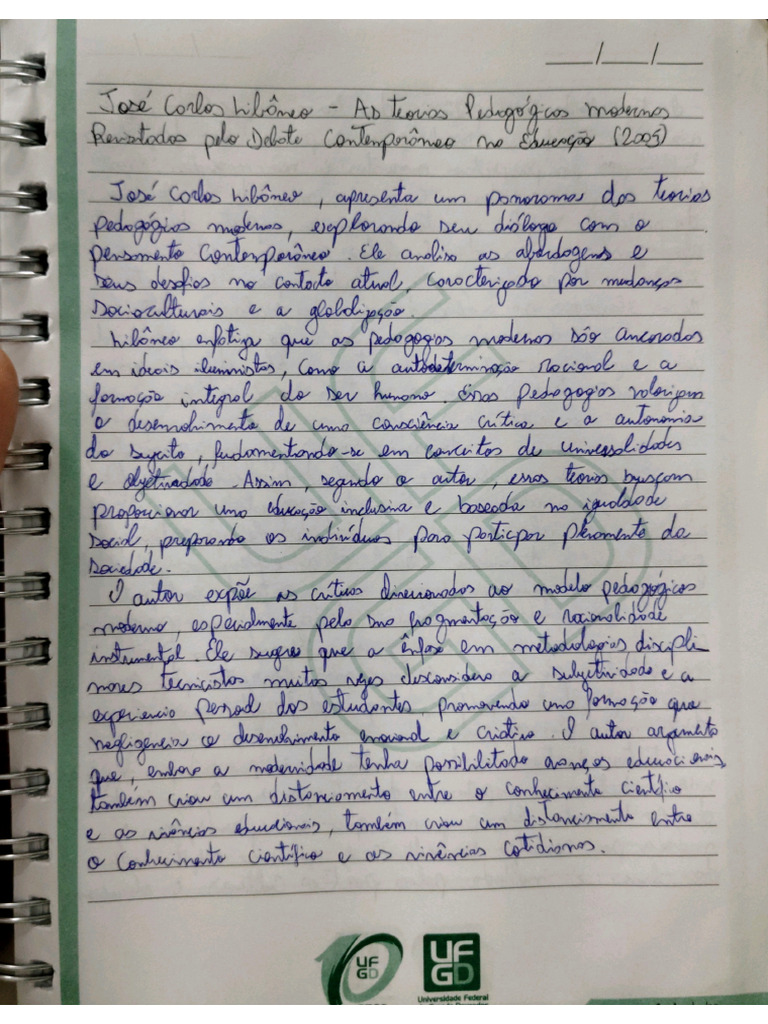 ___/___/___
José Carlos Libâneo - As Teorias Pedagógicas Modernas
Revistadas pelo Debate Contemporâneo na Educação (2005)
José Carlos Libâneo, apresenta um panorama das teorias
pedagógicas modernas, explorando seu diálogo com o
pensamento contemporâneo. Ele analisa as abordagens e
seus desafios no contexto atual, caracterizado por mudanças
socioculturais e a globalização.
Libâneo enfatiza que as pedagogias modernas são ancoradas
em ideais iluministas, como a autodeterminação racional e a
formação integral do ser humano. Essas Pedagogias valorizam
o desenvolvimento de uma consciência crítica e a autonomia
do sujeito, fundamentando-se em conceitos de universalidades
e objetividade. Assim, segundo o autor, essas teorias buscam
proporcionar uma educação inclusiva e baseada na igualdade
social, preparando os indivíduos para participar plenamente da
sociedade.
O autor expõe as críticas direcionadas ao modelo pedagógicos
moderno, especialmente pela sua fragmentação e racionalidade
instrumental. Ele sugere que a ênfase em metodologias discipli-
nares tecnicistas muitas vezes desconsidera a subjetividade e a
experiencia pessoal dos estudantes, promovendo uma formação que
negligencia o desenvolvimento emocional e criativo. O autor argumenta
que, embora a modernidade tenha possibilitado avanços educacionais,
também criou um distanciamento entre o conhecimento científico
e as vivências educacionais, também criou um distanciamento entre
o conhecimento científico e as vivências cotidianas.
UFGD
UF
GD
UF
GD
Universidade Federal